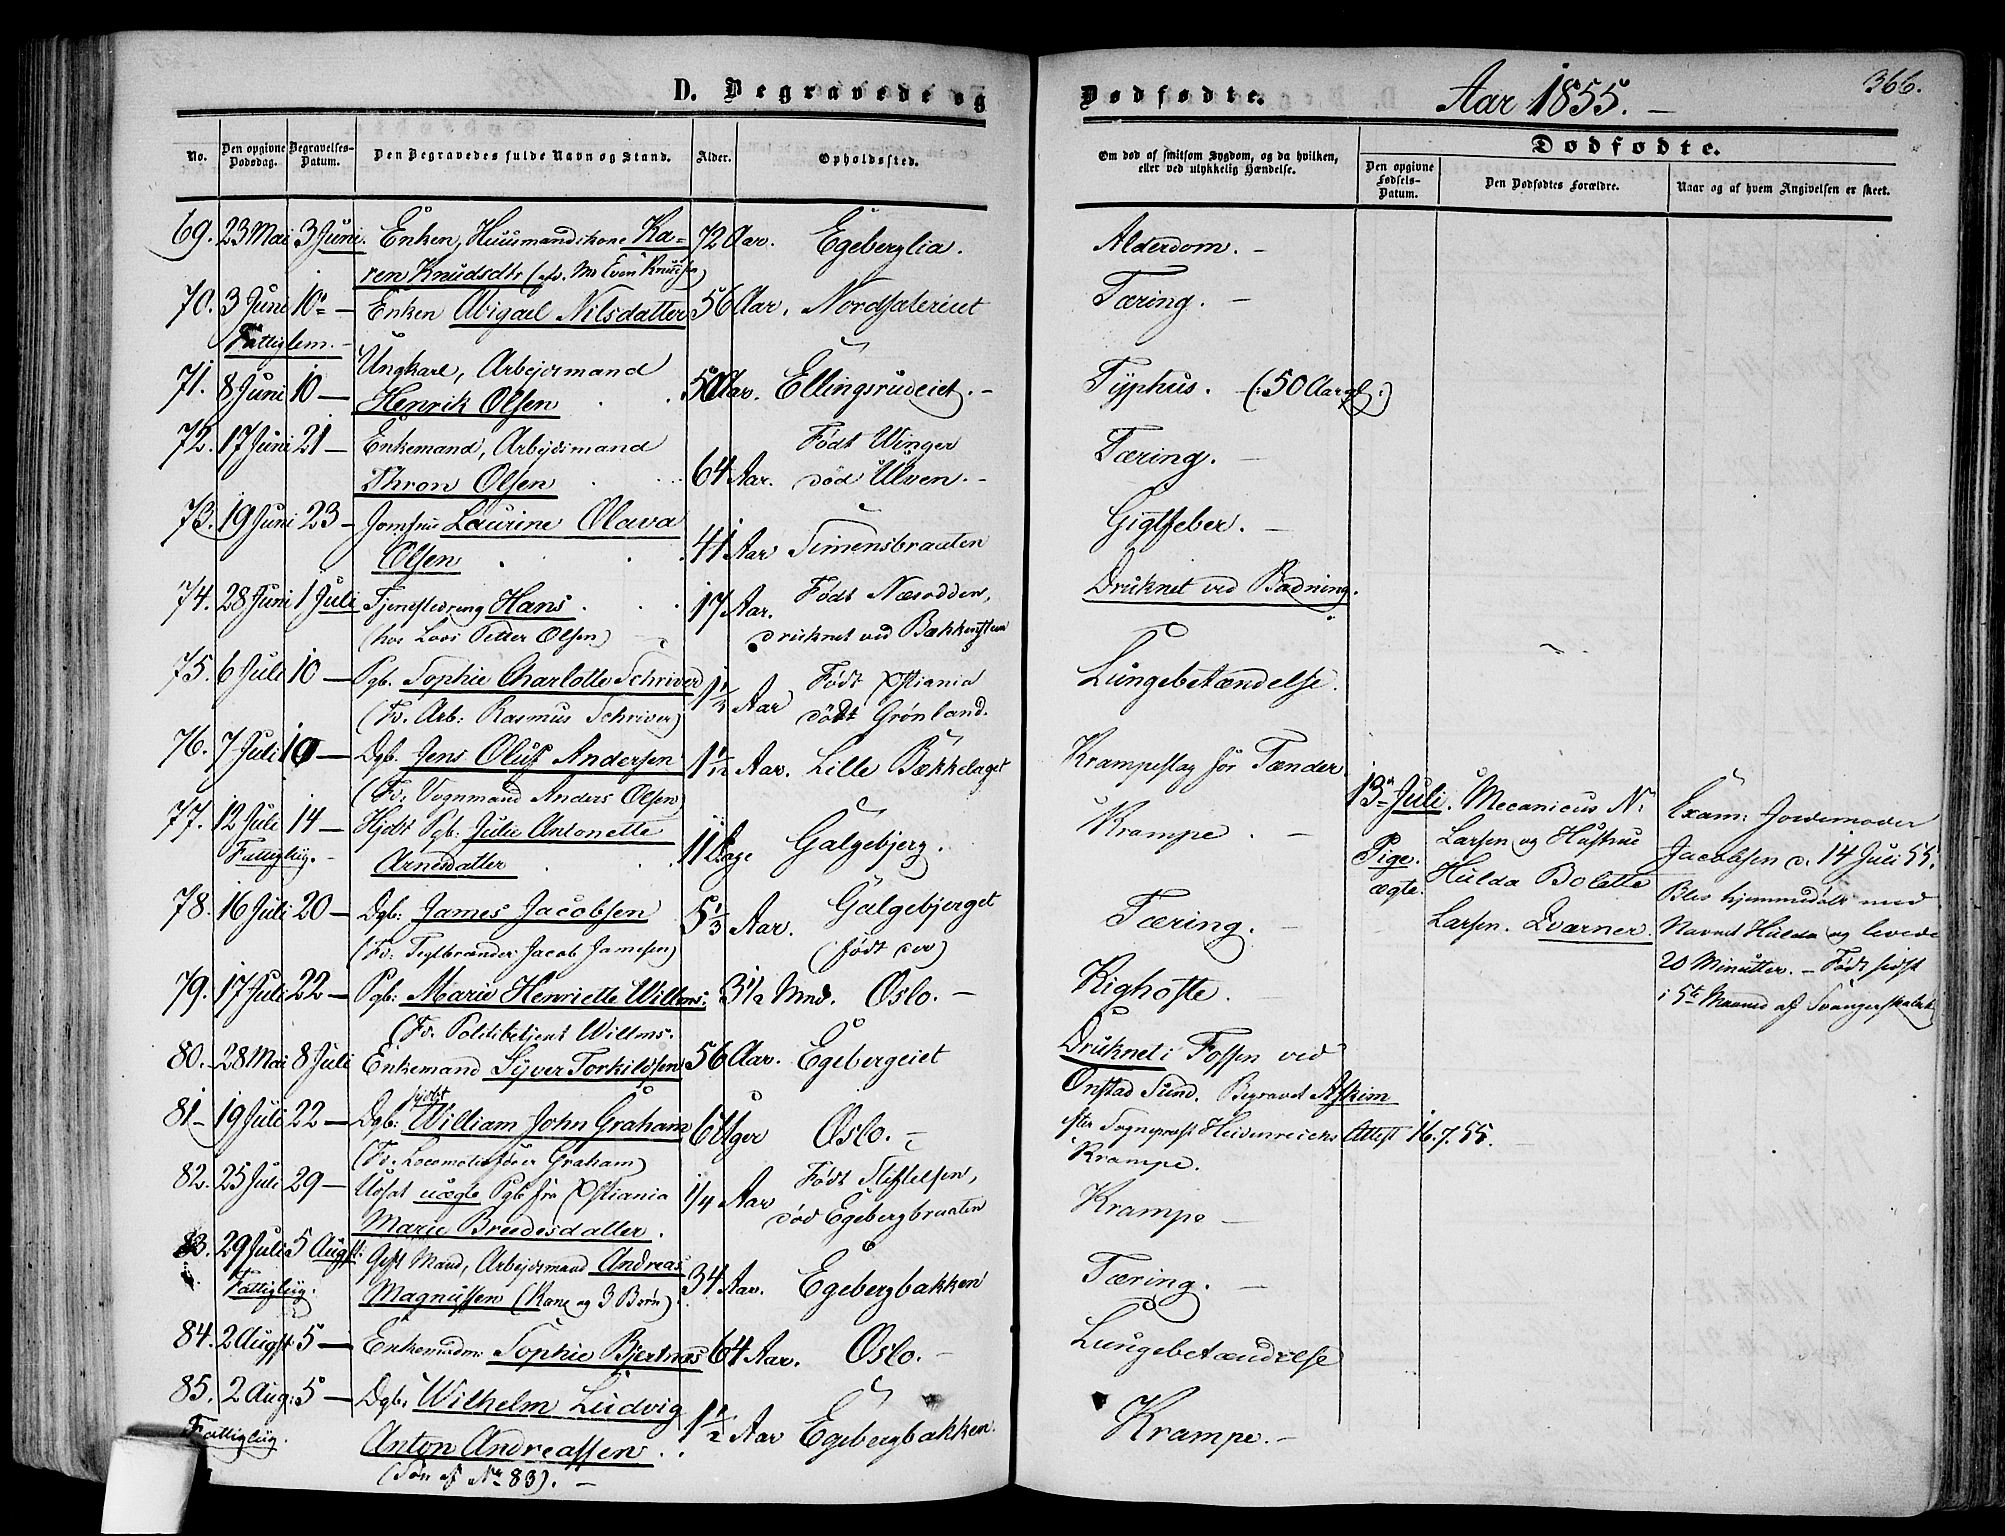 D. Begravede og
Dødfødte.
Aar 1855.
366.
No.
Den opgivne Dødsdag.
Begravelses-Datum.
Den Begravedes fulde Navn og Stand.
Alder.
Opholdssted.
Om død af smitsom Sygdom, og da hvilken, eller ved ulykkelig Hændelse.
Dødfødte.
Den opgivne Fødsels-Datum.
Den Dødfødtes Forældre.
Naar og af hvem Angivelsen er skeet.
69. 23 Mai 3 Juni. Enken, Huusmandskone Ka- 72 Aar. Egeberglia. Alderdom. –
ren Knudsdtr
70. 3 Juni 10 – Enken Abigael Nilsdatter 56 Aar. Nordsæteriet Tæring. –
Fattiglem. –
71. 8 Juni 10 – Ungkarl, Arbejdsmand
Henrik Olsen 50 Aar. Ellingsrudeiet. – Typhus. – (: 50 Aar gl :)
72. 17 Juni 21 – Enkemand, Arbejdsmand Født Winger
Thron Olsen 64 Aar. død Ulven. – Tæring. –
73. 19 Juni 23 – Jomfru Laurine Olava
Olsen 41 Aar Simensbraaten Gigtfeber. –
74. 28 Juni 1 Juli Tjenestedreng Hans 17 Aar. Født Næsodden, Druknet ved Badning.
(hos Lods Petter Olsen) druknet ved Bækkensten
75. 6 Juli 10 – Pgb. Sophie Charlotte Schriver Født Xstiania
(Fv. Arb: Rasmus Schriver) 1 1/2 Aar død Grønland. Lungebetændelse.
76. 7 Juli 10 – Dgb. Jens Oluf Andersen 1 1/12 Aar. Lille Bækkelaget Krampeslag for Tænder
(Fv: Vognmand Anders Olsen)
77. 12 Juli 14 – Hjdt Pgb: Julie Antonette
Fattiglig. –
Arnesdatter 11 Dage Galgebjerg. Krampe. –
13 Juli. Mecanicus N.
Pige. Larsen og Hustrue
ægte. Hulda Bolette
Larsen. Qværner.
Exam: Jordemoder
Jacobsen d. 14 Juli 55.
Blev hjemmedøbt med
Navnet Hulda og levede
20 Minutter. – Født sidst
i 5te Maaned af Svangerskabet
78. 16 Juli 20 – Dgb: James Jacobsen 5 1/3 Aar. Galgebjerget Tæring. –
(Fv: Teglbrænder Jacob Jamesen) (født der)
79. 17 Juli 22 – Pgb: Marie Henriette Willms. 3 1/2 Mnd. Oslo. – Kighoste. –
(Fv: Politibetjent Willms.
80. 28 Mai 8 Juli Enkemand Syver Torkildsen 56 Aar. Egebergeiet Druknet i Fossen ved
Onstad Sund. Begravet Askim
efter Sognepræst Heidenreichs Attest 16.7.55.
81 – 19 Juli 22 – Dgb: William John Graham 6 Uger Oslo. – Krampe.
(Fv: Locomotivfører Graham)
82. 25 Juli 29 – uægte Pgb fra Xstiania 1/4 Aar Født Stiftelsen, Krampe –
Marie Breedesdatter. død Egebergbraaten
83. 29 Juli 5 Augst. Gift Mand, Arbejdsmand Andreas 34 Aar. Egebergbakken Tæring. –
Fattiglig.
Magnussen (Kone og 3 Børn).
84. 2 Augst 5 – Sophie Bjertnæs 64 Aar. Oslo. – Lungebetændelse
85. 2 Aug: 5 – Dgb. Wilhelm Ludvig
Fattiglig.
Anton Andreassen 1 1/2 Aar Egebergbakken. Krampe. –
(Søn af Nr 83). –